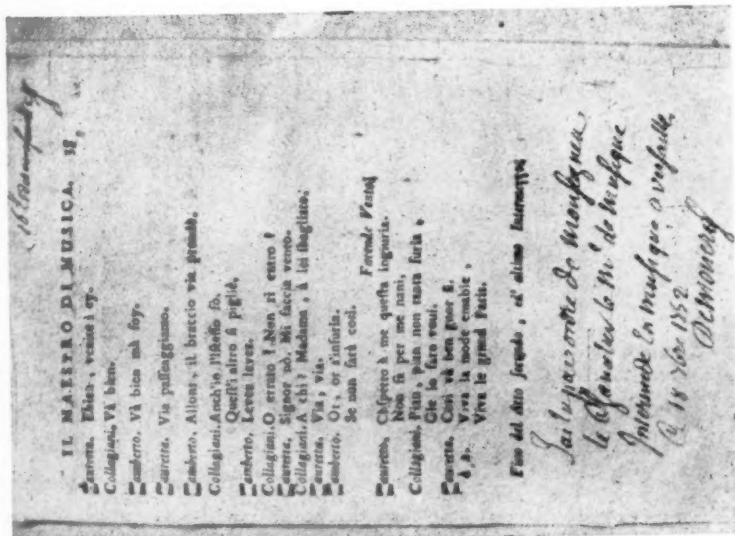 IL MAESTRO DI MUSICA. 38
Lauretta. Ebien, venite à oy.
Collagiani. Và bien.
Lamberto. Và bien mà foy.
Lauretta. Via passeggiamo.
Lamberto. Allons, il braccio via prendè.
Collagiani. Anch'io l'istesso fò.
Quest'altro si piglie.
Lamberto. Levez levez.
Collagiani. O errato! Non ri entro!
Lauretta. Signor nò. Mi faccia vento.
Collagiani. A chi? Madama, à lei sbagliato.
Lauretta. Via, via.
Lamberto. Or, or s'infuria.
Se non farà così.
Facendo Vento
Lauretta. Chispetto à me questa ingiuria.
Non fà per me nani.
Collagiani. Pian, pian non tanta furia,
Gie lo faro voui.
Lauretta. Così và ben gnor sì.
à 2. Viva la mode emable,
Vive le grand Paris.
Fine del Atto secondo, ed' ultimo Intermezzo
J'ai lu par ordre de monseigneur
le Chancelier le M. de musique
Intermede en musique a versaille,
Ce 18 7bre 1752
Demoncrif